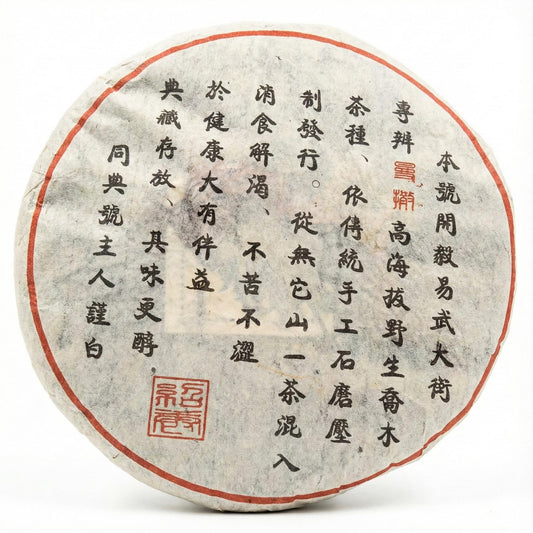 本號開毅易武大街
專辦易武高海拔野生喬木
茶種、依傳統手工石磨壓
制發行。從無它山一茶混入
消食解渴、不苦不澀
於健康大有伴益
典藏存放、其味更醇
同典號主人謹白